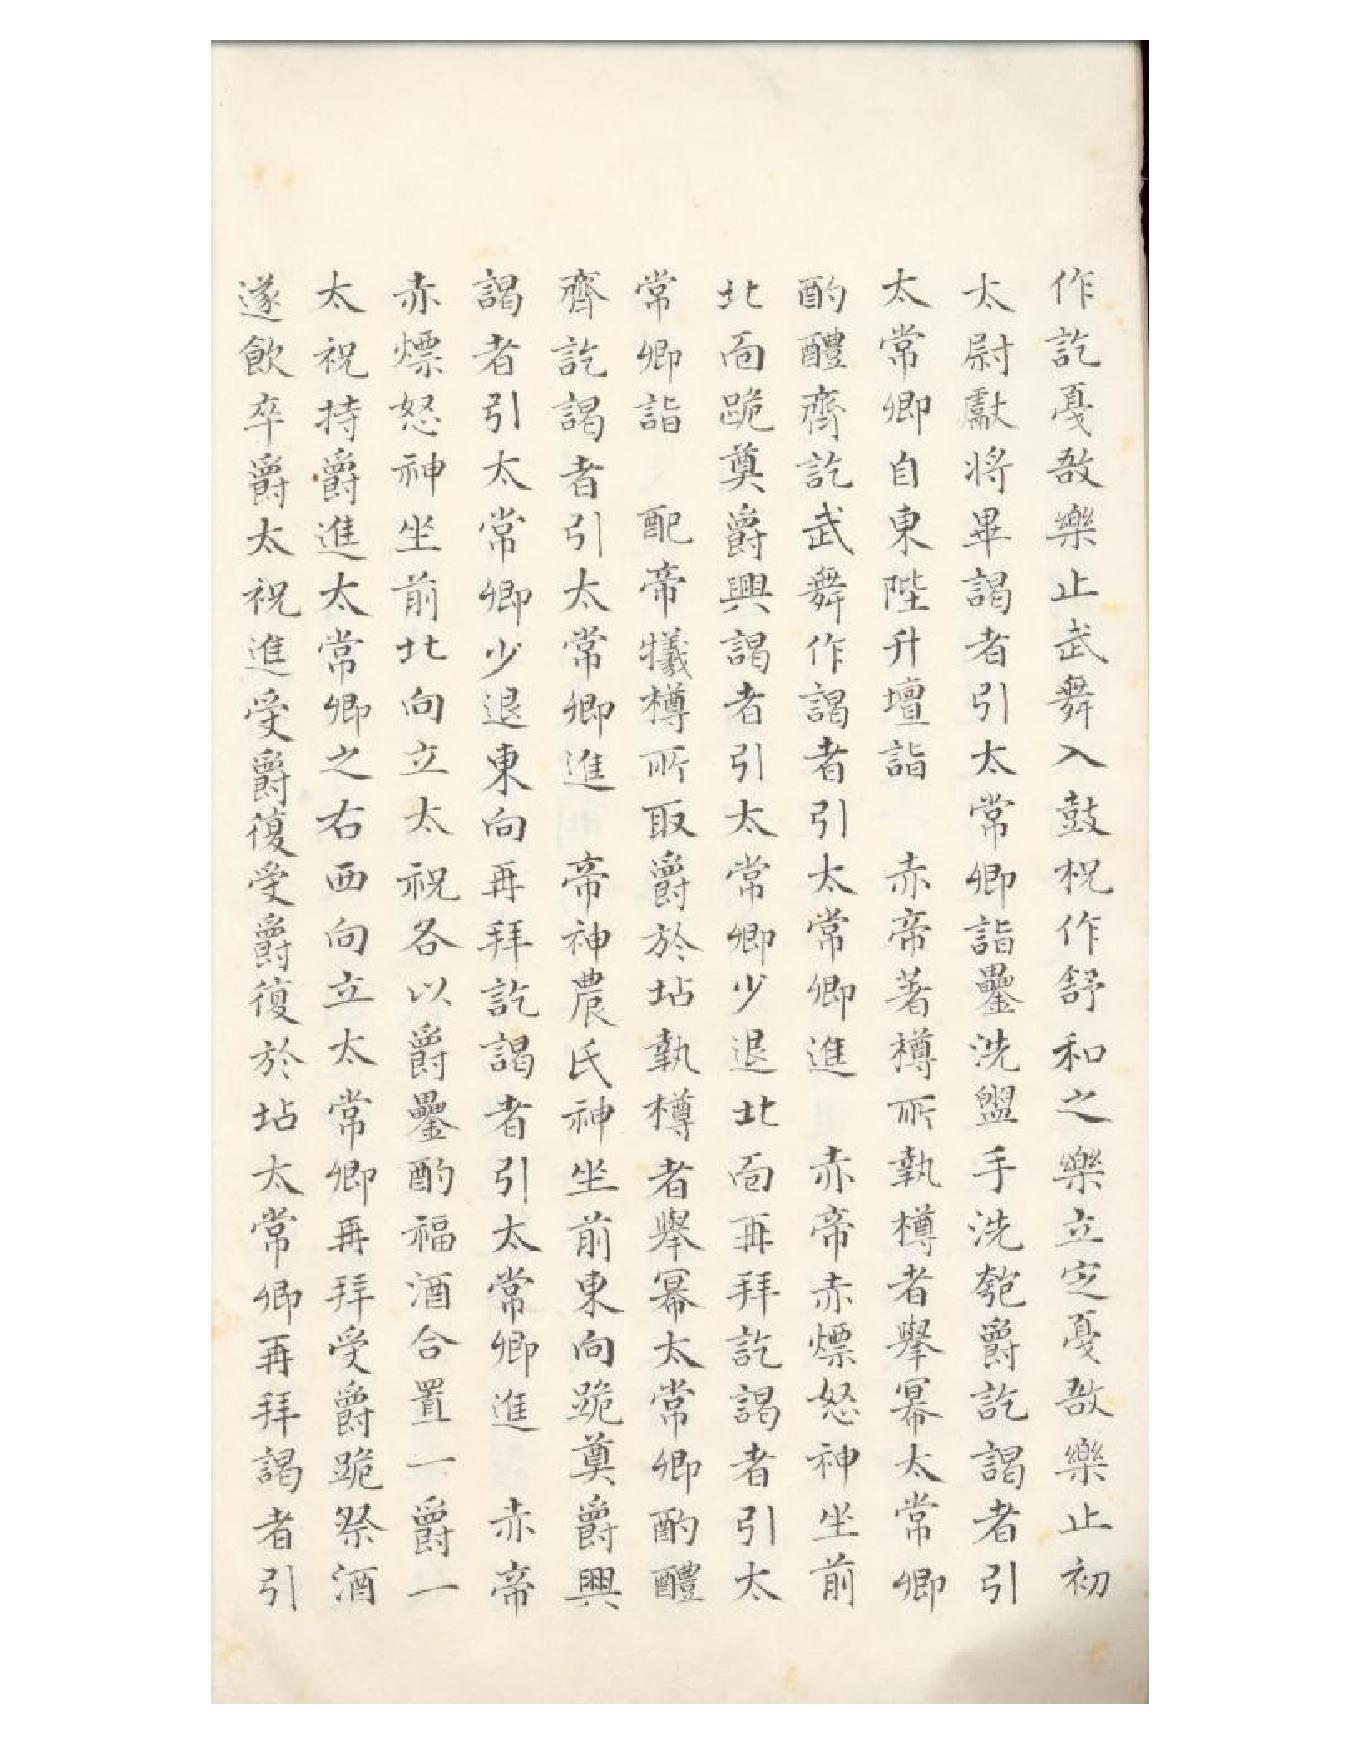 作訖戞敔樂止武舞入鼓柷作舒和之樂立定戞敔樂止初
太尉獻將畢謁者引太常卿詣罍洗盥手洗匏爵訖謁者引
太常卿自東陛升壇詣　赤帝著樽所執樽者舉冪太常卿
酌醴齊訖武舞作謁者引太常卿進　赤帝赤熛怒神坐前
北面跪奠爵興謁者引太常卿少退北面再拜訖謁者引太
常卿詣　配帝犧樽所取爵於坫執樽者舉冪太常卿酌醴
齊訖謁者引太常卿進　帝神農氏神坐前東向跪奠爵興
謁者引太常卿少退東向再拜訖謁者引太常卿進　赤帝
赤熛怒神坐前北向立太祝各以爵罍酌福酒合置一爵一
太祝持爵進太常卿之右西向立太常卿再拜受爵跪祭酒
遂飲卒爵太祝進受爵復受爵復於坫太常卿再拜謁者引